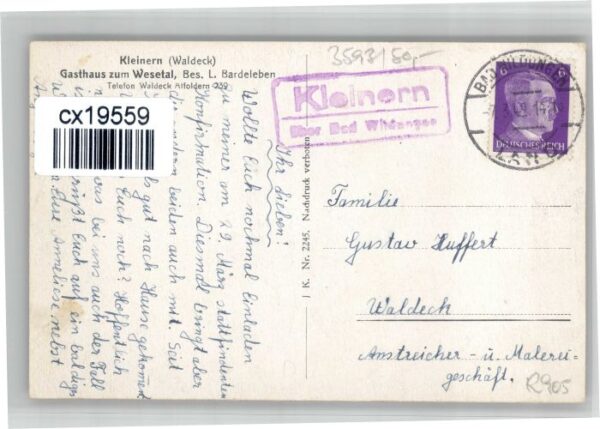 Kleinern (Waldeck)
Gasthaus zum Wesetal, Bes. L. Bardeleben
Telefon Waldeck Affoldern 239
cx19559
3593150,-
Kleinern
über Bad Wildungen
BAD WILDUNGEN
DEUTSCHES REICH
J K. Nr. 2245. Nachdruck verboten
Ihr Lieben!
Wollte Euch nochmal einladen
zu meiner am 29. März stattfindenden
Konfirmation. Diesmal bringt aber
die andern beiden auch mit. Seid
gut nach Hause gekommen
Euch noch? Hoffentlich
bei uns auch der Fall
grüßt Euch auf ein baldiges
Eure Anneliese nebst
Familie
Gustav Huffert
Waldeck
Anstreicher- u. Malerei-
geschäft.
R905